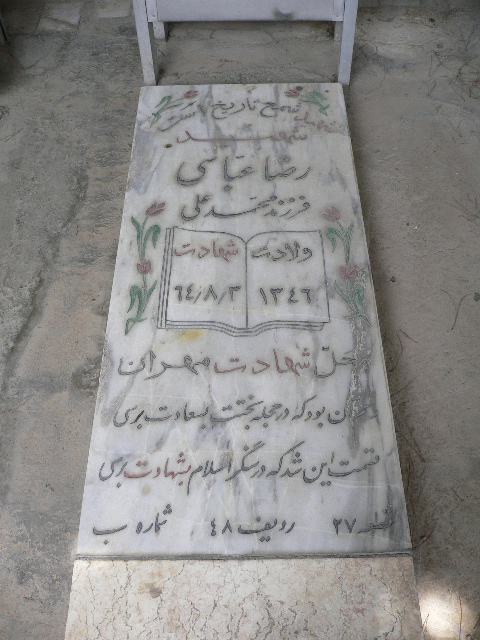 شمع تاریخ
شهید
رضا عباسی
فرزند محمد علی
ولادت شهادت
۱۳۴۶ ۶۴/۸/۳
محل شهادت مهران
بود که در حجله بختت بسعادت برسی
قسمت این شد که در سنگر اسلام بشهادت برسی
قطعه ۲۷ ردیف ۴۸ شماره ب